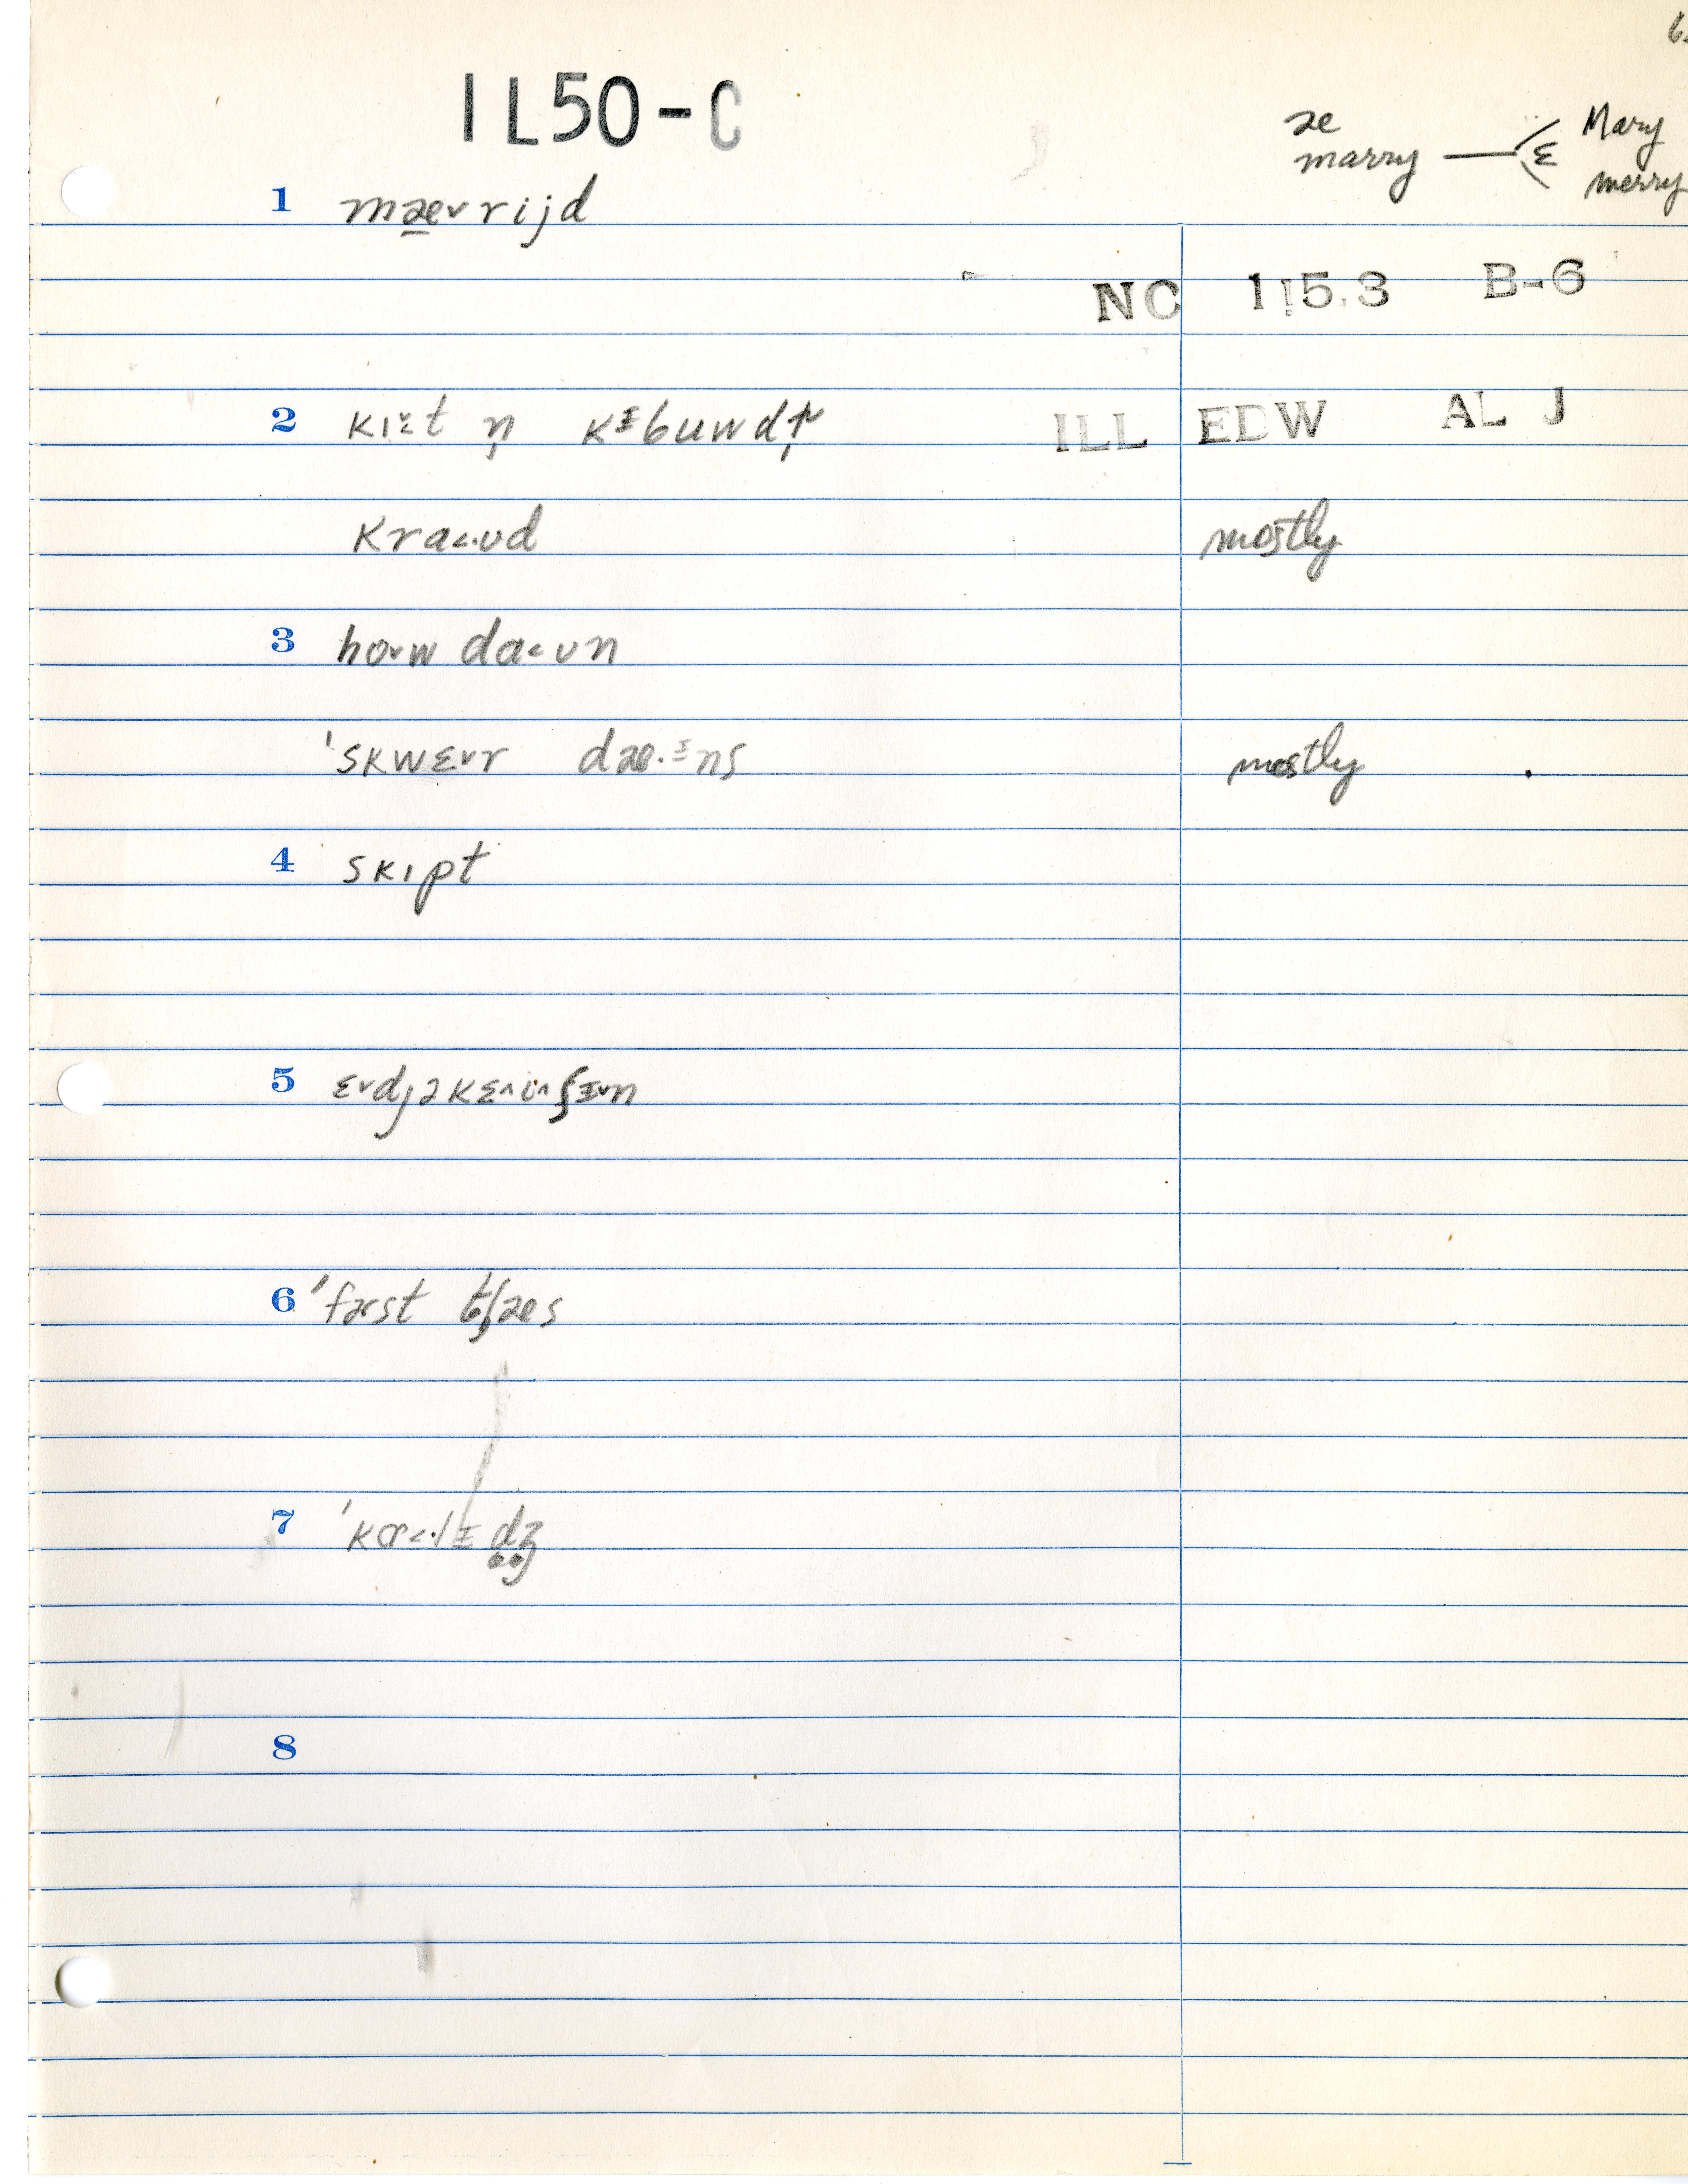 6
1L50-C
æ
marry — ɛ Mary
merry
1 mæ˅rijd
NC 115.3 B-6
2 kɪɪ̵˅t n̩ kɪ̵buwdɫ̩
ILL EDW AL J
kra˂·ʊd mostly
3 ho˅w da˂ʊn
'skwɛ˅r dæ·ɪ̵ns mostly
4 skɪpt
5 ɛ˅dʒəkɛ˄i˄ʃɪ̵˅n
6 'fæst tʃæs
7 'kɑ˂·lɪ̵dʒ̥
8